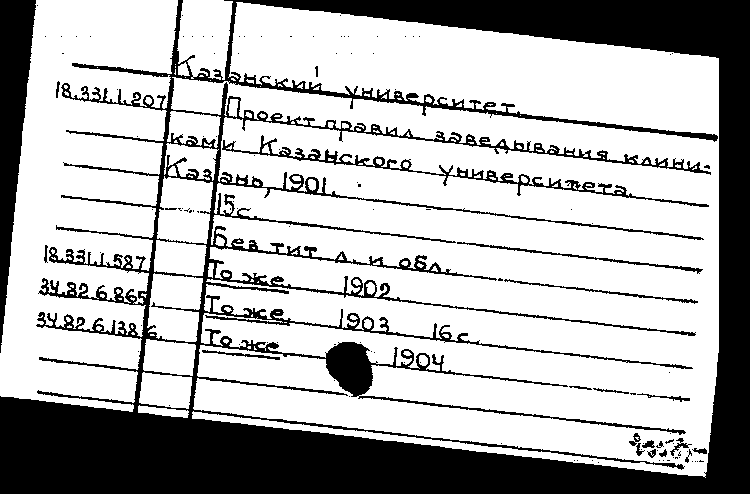 Казанский университет.
18.331.1.207 Проект правил заведывания клини-
ками Казанского университета.
Казань, 1901.
15с.
Без тит л. и обл.
18.331.1.587 То же. 1902.
34.82 6.865. То же. 1903. 16с.
34.82 6.1386. То же. 1904.